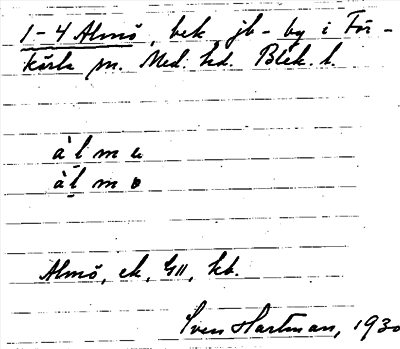 1-4 Almö, bek. jb-by i För-
kärla sn. Med. hd. Blek. l.
àl m u
àl m o
Almö, ek, GII, kb.
Sven Hartman, 1930